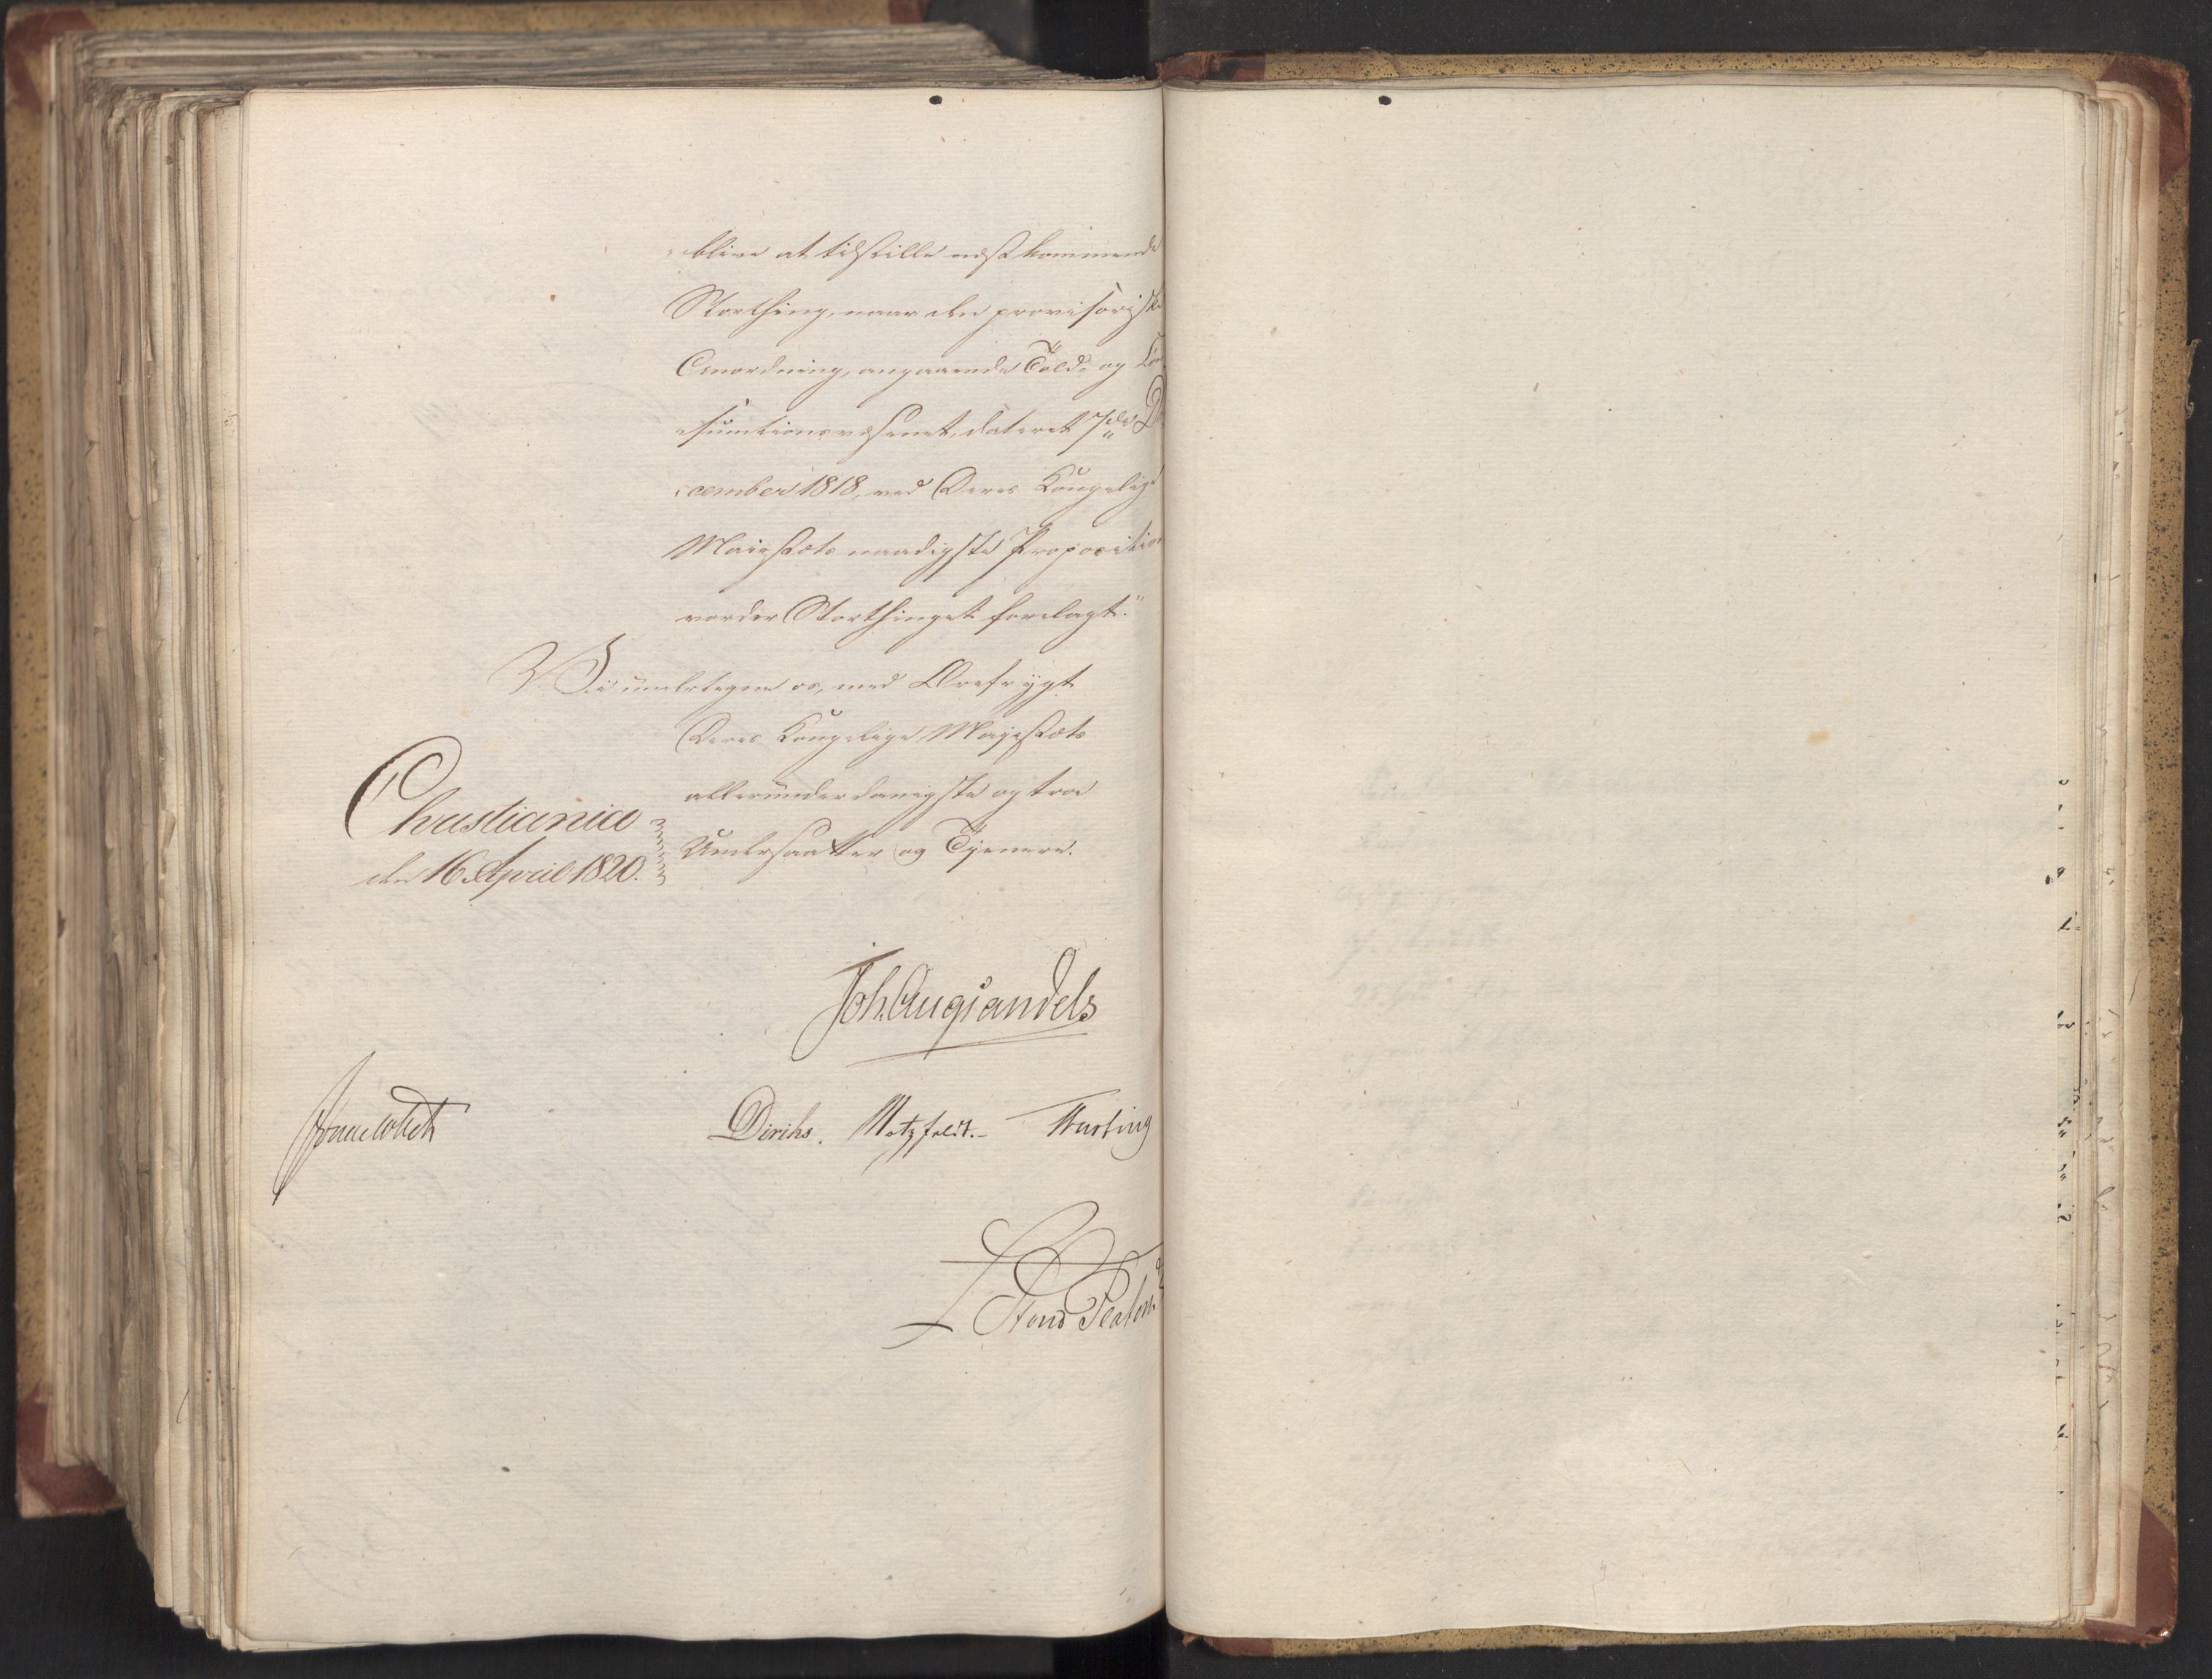 blive at tilstille næstkommende
Storthing, naar den provisoriske
Anordning, angaaende Told- og Con-
sumtionsvæsenet, dateret 7de De-
cember 1818, ved Deres Kongelige
Maiestæts naadigste Proposition
vorder Storthinget forelagt."
Vi undertegne os, med Ærefrygt
Deres Kongelige Majestæts
allerunderdanigste og troe
Undersaatter og Tjenere.
Christiania
den 16 April 1820.
Joh. Aug Sandels
Sommerhielm
Diriks. Motzfeldt.- Fasting
L Stoud Platou